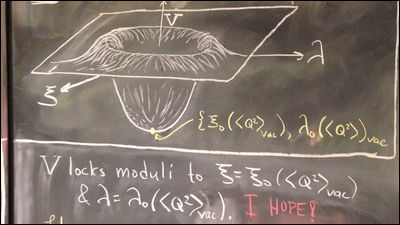 V
λ
ξ
{ξ₀(⟨Q²⟩vac), λ₀(⟨Q²⟩)vac
V locks moduli to ξ = ξ₀(⟨Q²⟩vac)
& λ = λ₀(⟨Q²⟩vac). I HOPE!